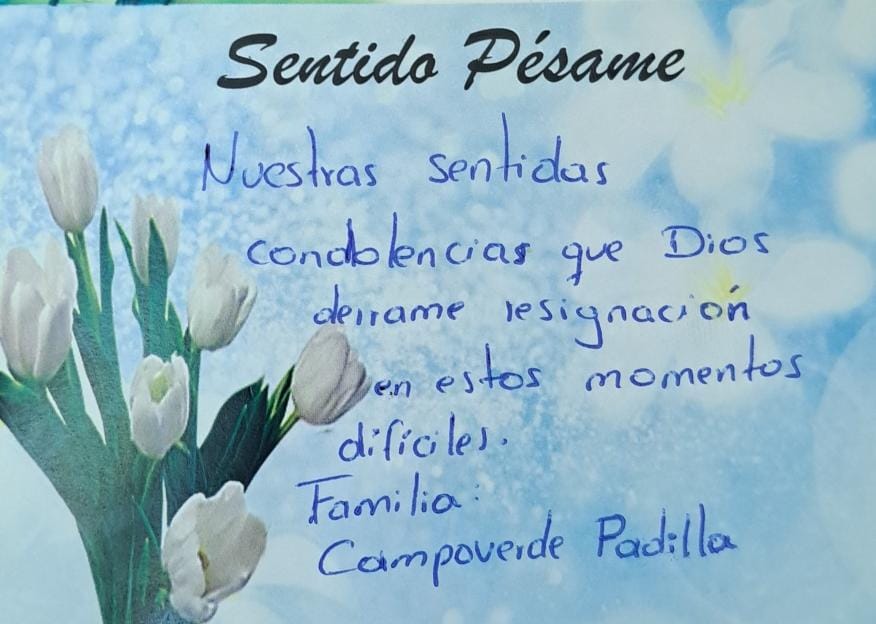 Sentido Pésame
Nuestras sentidas
condolencias que Dios
derrame resignación
en estos momentos
difíciles.
Familia:
Campoverde Padilla